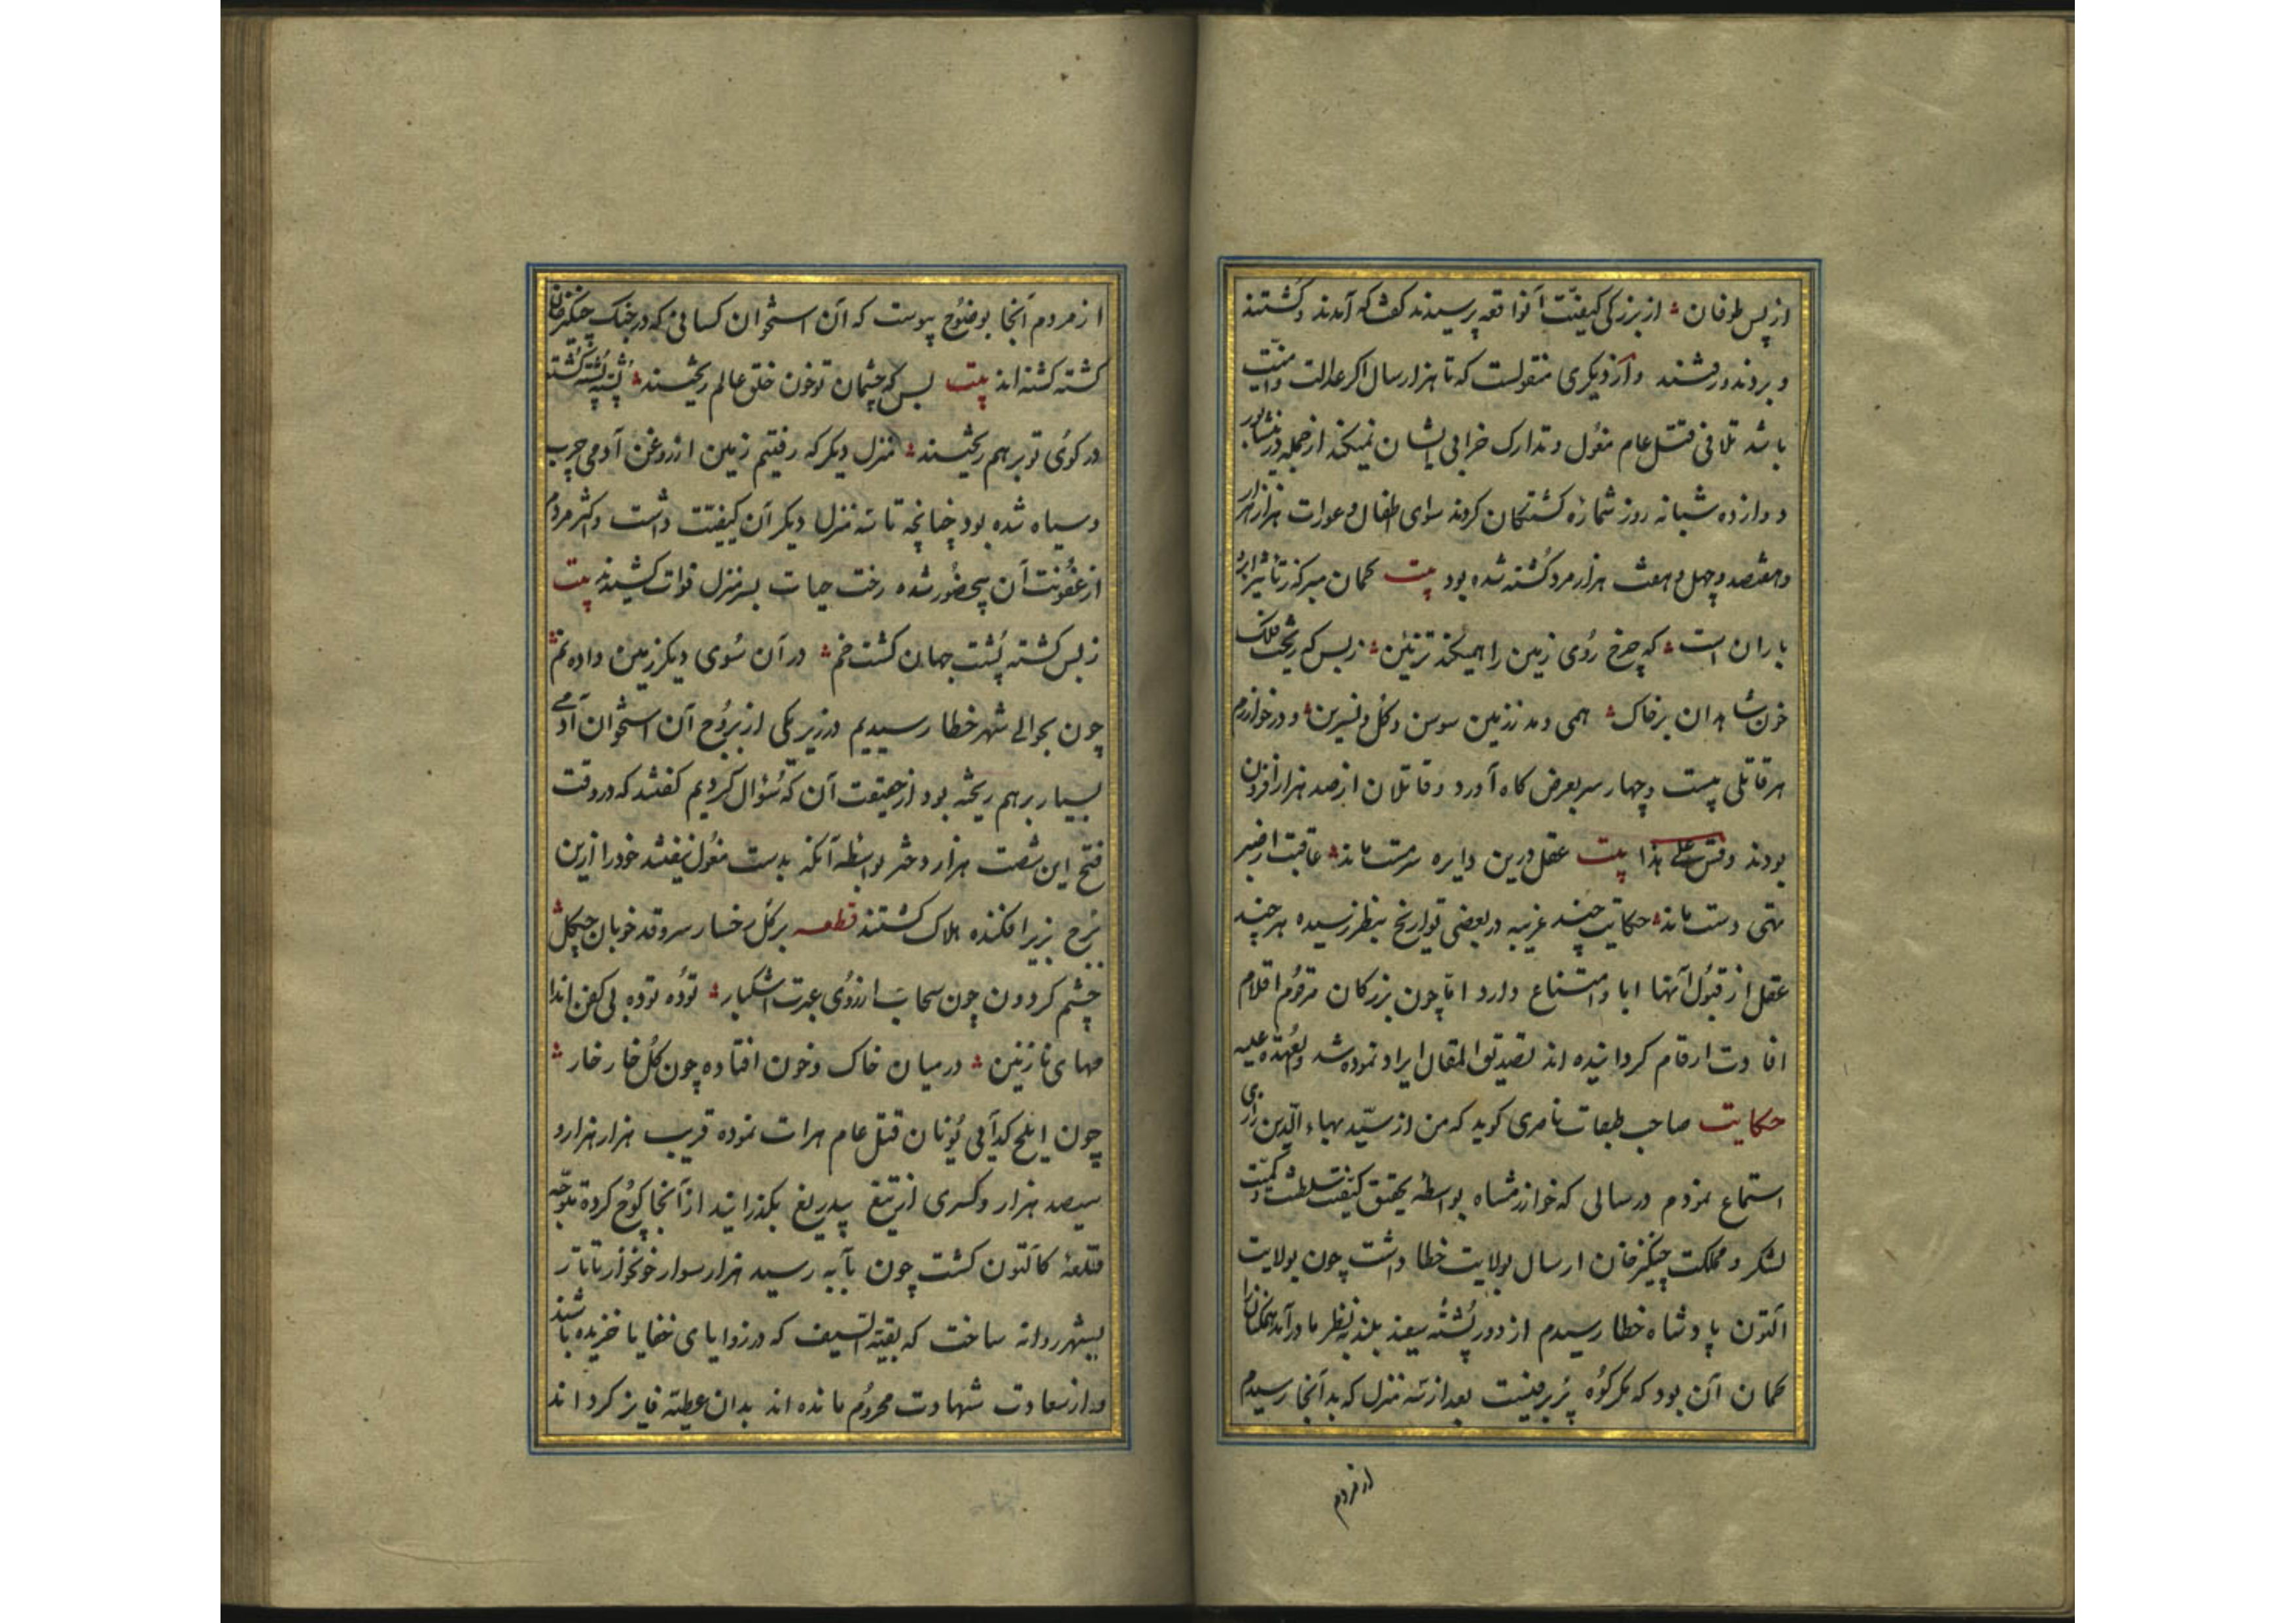 از پس طوفان از بزرگی کیفیّت آنواقعه پرسیدند گفت که آمدند و کُشتند
و بردند و رفتند و از دیگری منقولست که تا هزار سال اگر عدالت و امنیّت
باشد تلافی قتل عام مغول و تدارک خرابی ایشان نمیکند از جمله در نیشابور
دوازده شبانه روز شمارهٔ کشتکان کردند سوای اطفال و عورات هزار هزار
و هفتصد و چهل و هفت هزار مرد کُشته شده بود بیت کمان مبر که ز تاثیر ابر و
باران است که چرخ رُوی زمین را همیکند تزئین ز بس که ریخت فلک
خون شاهدان بر خاک همی دمد ز زمین سوسن و کل و نسرین و در خوارزم
هر قاتلی بیست و چهار سر بعرض کاه آورد و قاتلان از صد هزار افزون
بودند و قس علی هذا بیت عقل درین دایره سرمست ماند عاقبت از
تهی دست ماند حکایت چند غریبه در بعضی تواریخ بنظر رسیده هر چند
عقل از قبُول آنها ابا و امتناع دارد امّا چون بزرکان مرقُوم اقلام
افادت ارقام کردانیده اند تصدیقا لمقال ایراد نموده شد و العُهدة علیه
حکایت صاحب طبقات ناصری کوید که من از سیّد بهاء الدّین رازی
استماع نمودم در سالی که خوارزمشاه بواسطه تحقیق کیفیّت سلطنت و کمیّت
لشکر و مملکت چنکیز خان ارسال بولایت خطا داشت چون بولایت
التون پادشاه خطا رسیدم از دور پُشتهٔ سفید بلند بنظر ما درآمد همکنان را
کمان آن بود که مکر کوُه پُر برفیست بعد از سه منزل که بدآنجا رسیدم
از مردم
از مردم آنجا بوضُوح پیوست که آن استخوان کسانی که در جنک چنکیز خان
کشته کشته اند بیت بس که چشمان تو خون خلق عالم ریختند پُشته پُشته کُشته
در کوُی تو بر هم ریختند منزل دیکر که رفتیم زمین از روغن آدمی چرب
و سیاه شده بود چنانچه تا سه منزل دیکر آن کیفیّت داشت و اکثر مردم
از عفُونت آن بیحضُور شده رخت حیات بسر منزل فوات کشیدند بیت
ز بس کشته پُشت جهان کشت خم در آن سُوی دیکر زمین داده نم
چون بحوالی شهر خطا رسیدیم در زیر یکی از بروُج آن استخوان آدمی
بسیار بر هم ریخته بود از حقیقت آن که سُؤال کردیم کفتند که در وقت
فتح این شصت هزار دختر بواسطه آنکه بدست مغُول نیفتند خود را ازین
بُرج بزیر افکنده هلاک کشتند قطعه بر کل رخسار سرو قد خوبان چکل
چشم کردون چون سحاب از روُی عبرت اشکبار توده توده بی کفن اندا
مهای نازنین در میان خاک و خون افتاده چون کُل خار خار
چون قتل عام هرات نموده قریب هزار هزار و
سیصد هزار و کسری از تیغ بیدریغ بکذرانید از آنجا کوُچ کرده متوجّه
قلعهٔ کالتون کشت چون بآبه رسید هزار سوار خونخوار تاتار
بشهر روانه ساخت که بقیّة السّیف که در زوایای خفایا خزیده باشند
و از سعادت شهادت محرُوم مانده اند بدان عطیّه فایز کرد اند